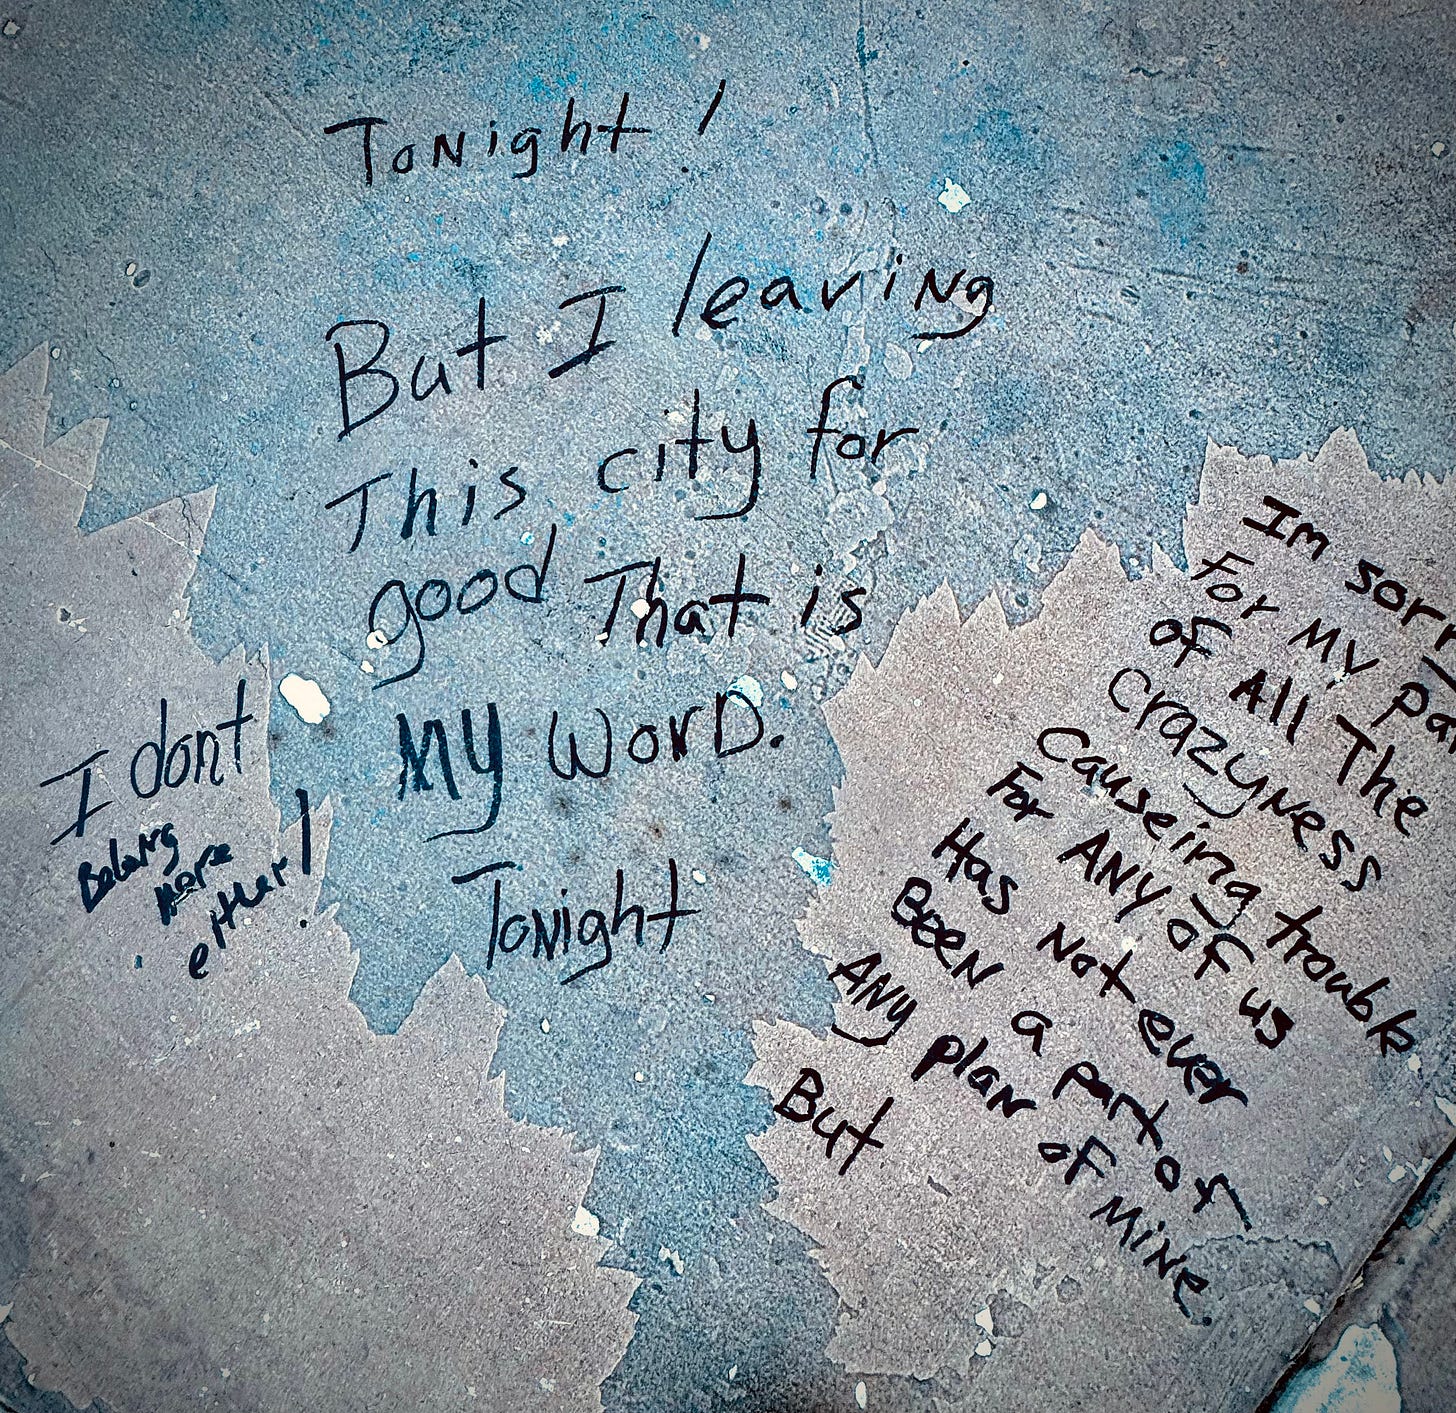 Tonight!
But I leaving
This city for
good That is
My WorD.
Tonight
I dont
Belong
here
either!
Im sorry
For My par
of All The
Crazyness
Causeing trouble
For ANy of us
Has Not ever
BEEN a part of
ANy plan of MiNe.
But